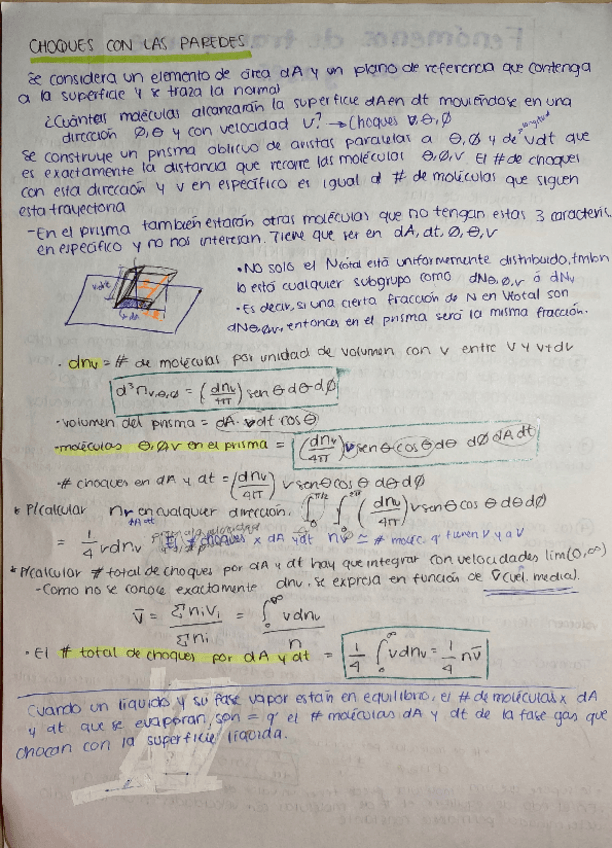 CHOQUES CON LAS PAREDES
Se considera un elemento de área dA y un plano de referencia que contenga
a la superficie y se traza la normal
¿Cuántas moléculas alcanzarán la superficie dA en dt moviéndose en una
dirección Ø, θ y con velocidad v? → Choques v, θ, Ø
Se construye un prisma oblicuo de aristas paralelas a θ, Ø y de longitud vdt que
es exactamente la distancia que recorre las moléculas θ, Ø, v. El # de choques
con esta dirección y v en específico es igual al # de moléculas que siguen
esta trayectoria
- En el prisma también estarán otras moléculas que no tengan estas 3 caracterís.
en específico y no nos interesan. Tiene que ser en dA, dt, Ø, θ, v
• No solo el Ntotal está uniformemente distribuido, tmbn
lo está cualquier subgrupo como dNθ,Ø,v ó dNv
• Es decir, si una cierta fracción de N en Vtotal son
dNθ,Ø,v, entonces en el prisma será la misma fracción.
vdt
dA
• dnv = # de moléculas por unidad de volumen con v entre v y v+dv
d³nv,θ,Ø = (dnv/4π) sen θ dθ dØ
• volumen del prisma = dA · vdt cos θ
• moléculas θ, Ø, v en el prisma = (dnv/4π) v sen θ cos θ dθ dØ dA dt
• # choques en dA y dt = (dnv/4π) v sen θ cos θ dθ dØ
* P/calcular nv en cualquier dirección. ∫₀^π/2 ∫₀^2π (dnv/4π) v sen θ cos θ dθ dØ
dA dt
= 1/4 v dnv # choques x dA y dt nv ≃ # moléc. q' tienen v y a v
* P/calcular # total de choques por dA y dt hay que integrar con velocidades lim(0,∞)
- Como no se conoce exactamente dnv, se expresa en función de v̄ (vel. media).
v̄ = Σ nᵢvᵢ / Σ nᵢ = ∫₀^∞ v dnv / n
• El # total de choques por dA y dt = 1/4 ∫₀^∞ v dnv = 1/4 n v̄
Cuando un líquido y su fase vapor están en equilibrio, el # de moléculas x dA
y dt que se evaporan, son = q' el # moléculas dA y dt de la fase gas que
chocan con la superficie líquida.